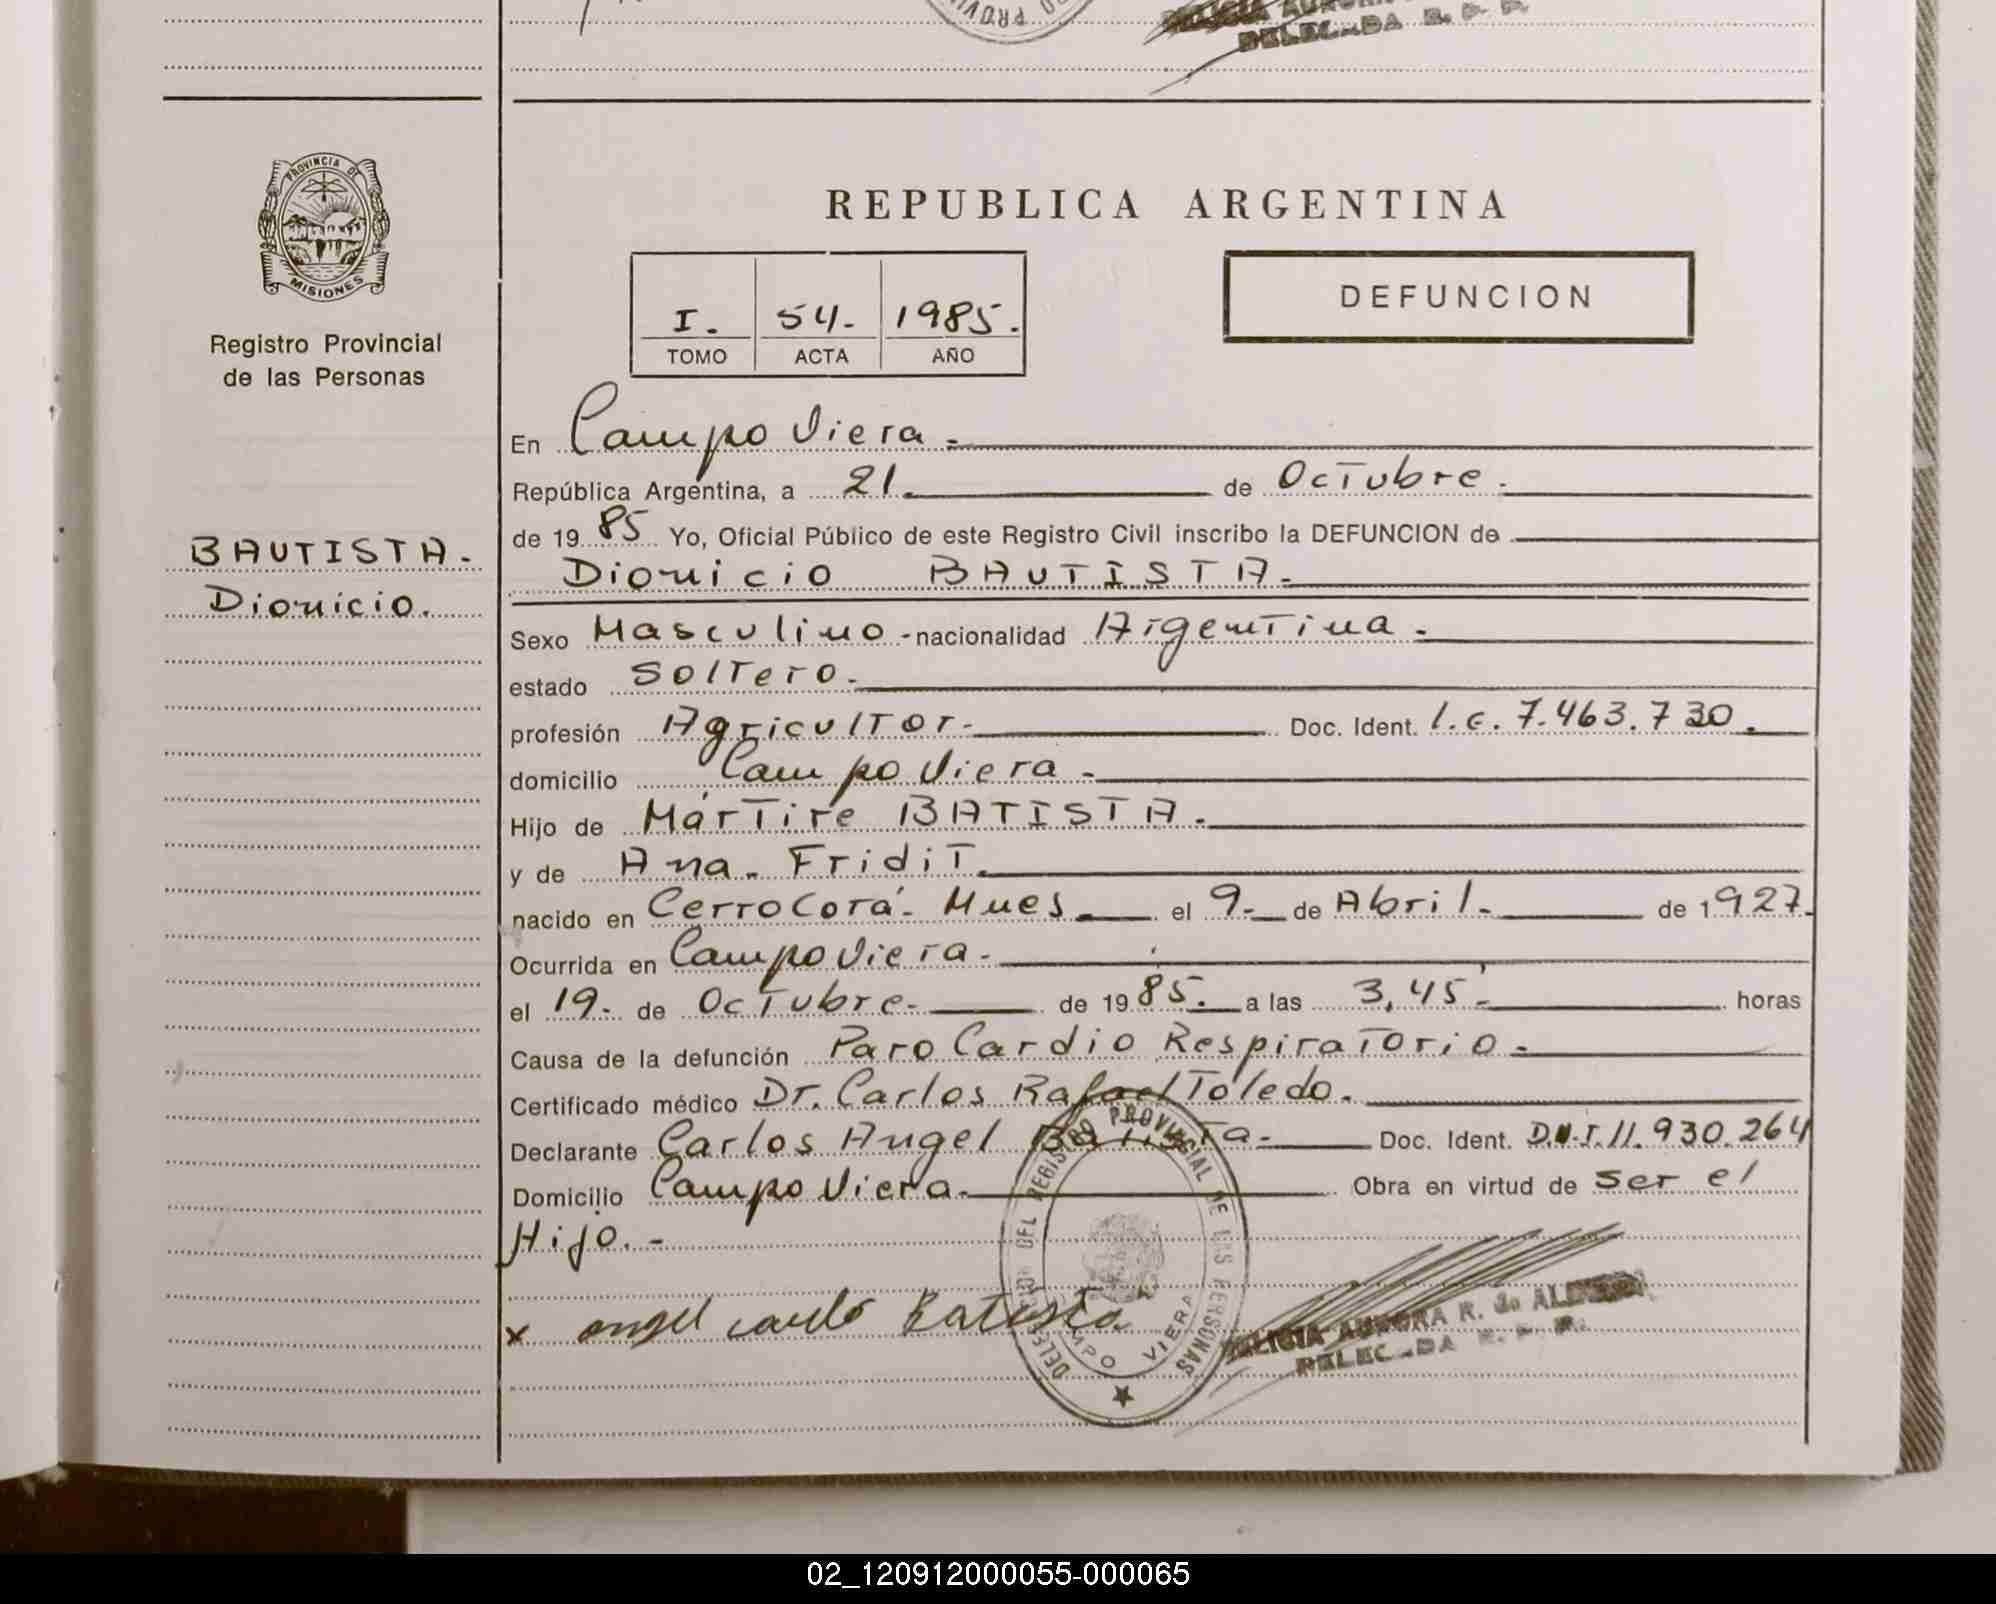 DELEGADA R. P. P.
PROVINCIA DE
MISIONES
Registro Provincial
de las Personas
BAUTISTA.
Dionicio.
REPUBLICA ARGENTINA
I. 54.- 1985.
TOMO ACTA AÑO
DEFUNCION
En Campo Viera.-
República Argentina, a 21. de Octubre.
de 1985 Yo, Oficial Público de este Registro Civil inscribo la DEFUNCION de
Dionicio BAUTISTA.-
Sexo Masculino.- nacionalidad Argentina.-
estado Soltero.-
profesión Agricultor.- Doc. Ident. l.e. 7.463.730.
domicilio Campo Viera.-
Hijo de Mártire BATISTA.-
y de Ana. Fridit.
nacido en Cerro Corá- Mnes. el 9.- de Abril.- de 1927.
Ocurrida en Campo Viera.-
el 19.- de Octubre.- de 1985.- a las 3,45'.- horas
Causa de la defunción Paro Cardio Respiratorio.-
Certificado médico Dr. Carlos Rafael Toledo.-
Declarante Carlos Angel Batista.- Doc. Ident. D.N.I. 11.930.264
Domicilio Campo Viera.- Obra en virtud de ser el
Hijo.-
x angel carlo Batista
REGISTRO PROVINCIAL DE LAS PERSONAS
CAMPO VIERA
AURORA R. de
DELEGADA R. P. P.
02_120912000055-000065